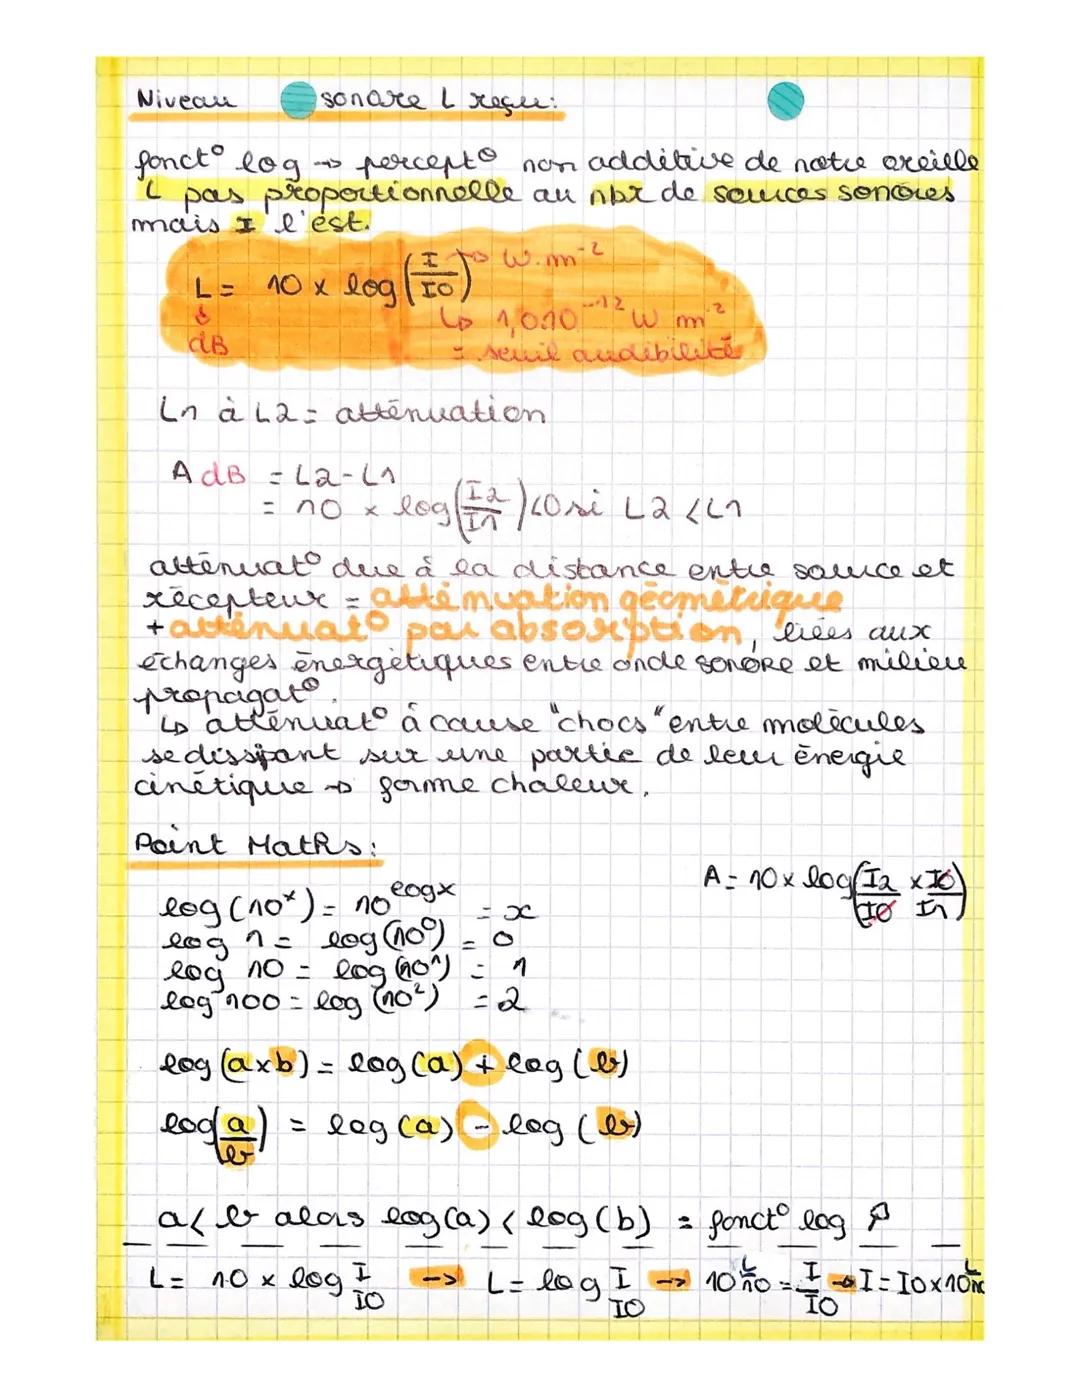 Niveau sonore L reçu:
fonct° log → percept° non additive de notre oreille
L pas proportionnelle au nbr de sources sonores
mais I l'est.
L = 10 x log(I/I0) → W.m⁻²
↳ 1,0.10⁻¹² W m⁻²
dB = seuil audibilité
L1 à L2 = atténuation
A dB = L2-L1
= 10 x log(I2/I1) <0 si L2 < L1
atténuat° due à la distance entre source et
récepteur = atténuation géométrique
+ atténuat° par absorption, liées aux
échanges énergétiques entre onde sonore et milieu
propagat°.
↳ atténuat° à cause "chocs" entre molécules
se dissipant sur une partie de leur énergie
cinétique → forme chaleur.
Point Maths:
A = 10 x log(I2/I0 x I0/I1)
log (10ˣ) = 10^logx = x
log 1 = log (10⁰) = 0
log 10 = log (10¹) = 1
log 100 = log (10²) = 2
log (a x b) = log (a) + log (b)
log(a/b) = log (a) - log (b)
a < b alors log(a) < log (b) = fonct° log ↗
L = 10 x log I/I0 → L = log I/I0 → 10^L/10 = I/I0 → I = I0 x 10^L/10